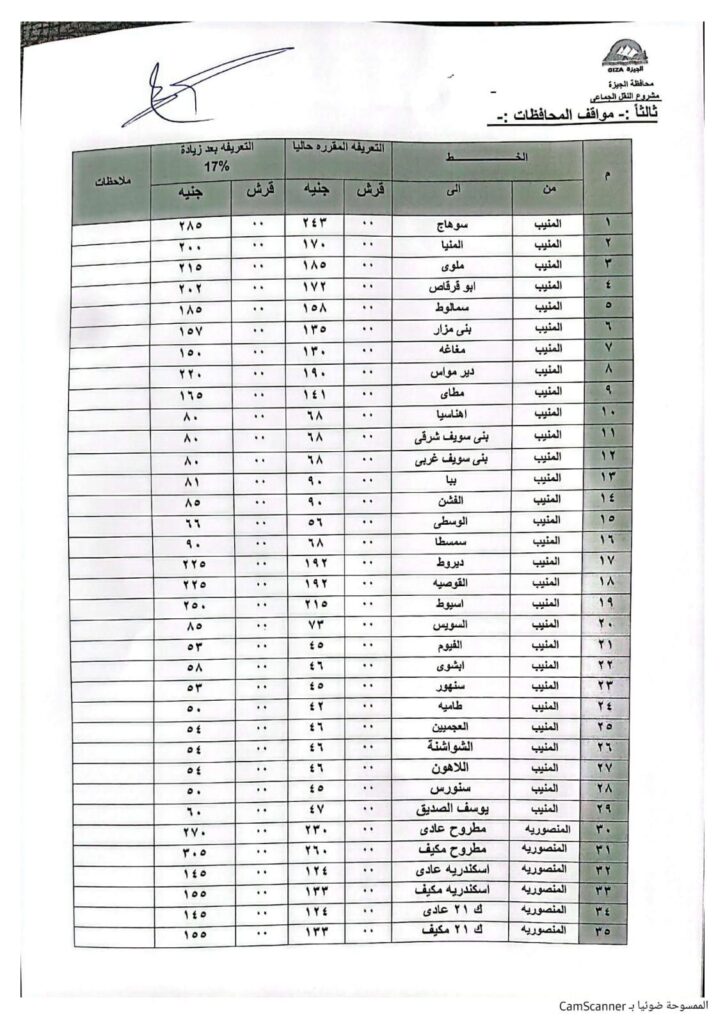 الجيزة GIZA
محافظة الجيزة
مشروع النقل الجماعى
ثالثاً :- مواقف المحافظات :-
م الخــــط التعريفه المقرره حاليا التعريفه بعد زيادة 17% ملاحظات
من الى قرش جنيه قرش جنيه
١ المنيب سوهاج ٠٠ ٢٤٣ ٠٠ ٢٨٥
٢ المنيب المنيا ٠٠ ١٧٠ ٠٠ ٢٠٠
٣ المنيب ملوى ٠٠ ١٨٥ ٠٠ ٢١٥
٤ المنيب ابو قرقاص ٠٠ ١٧٢ ٠٠ ٢٠٢
٥ المنيب سمالوط ٠٠ ١٥٨ ٠٠ ١٨٥
٦ المنيب بنى مزار ٠٠ ١٣٥ ٠٠ ١٥٧
٧ المنيب مغاغه ٠٠ ١٣٠ ٠٠ ١٥٠
٨ المنيب دير مواس ٠٠ ١٩٠ ٠٠ ٢٢٠
٩ المنيب مطاى ٠٠ ١٤١ ٠٠ ١٦٥
١٠ المنيب اهناسيا ٠٠ ٦٨ ٠٠ ٨٠
١١ المنيب بنى سويف شرقى ٠٠ ٦٨ ٠٠ ٨٠
١٢ المنيب بنى سويف غربى ٠٠ ٦٨ ٠٠ ٨٠
١٣ المنيب ببا ٠٠ ٩٠ ٠٠ ٨١
١٤ المنيب الفشن ٠٠ ٩٠ ٠٠ ٨٥
١٥ المنيب الوسطى ٠٠ ٥٦ ٠٠ ٦٦
١٦ المنيب سمسطا ٠٠ ٦٨ ٠٠ ٩٠
١٧ المنيب ديروط ٠٠ ١٩٢ ٠٠ ٢٢٥
١٨ المنيب القوصيه ٠٠ ١٩٢ ٠٠ ٢٢٥
١٩ المنيب اسيوط ٠٠ ٢١٥ ٠٠ ٢٥٠
٢٠ المنيب السويس ٠٠ ٧٣ ٠٠ ٨٥
٢١ المنيب الفيوم ٠٠ ٤٥ ٠٠ ٥٣
٢٢ المنيب ابشوى ٠٠ ٤٦ ٠٠ ٥٨
٢٣ المنيب سنهور ٠٠ ٤٥ ٠٠ ٥٣
٢٤ المنيب طاميه ٠٠ ٤٢ ٠٠ ٥٠
٢٥ المنيب العجميين ٠٠ ٤٦ ٠٠ ٥٤
٢٦ المنيب الشواشنة ٠٠ ٤٦ ٠٠ ٥٤
٢٧ المنيب اللاهون ٠٠ ٤٦ ٠٠ ٥٤
٢٨ المنيب سنورس ٠٠ ٤٥ ٠٠ ٥٠
٢٩ المنيب يوسف الصديق ٠٠ ٤٧ ٠٠ ٦٠
٣٠ المنصوريه مطروح عادى ٠٠ ٢٣٠ ٠٠ ٢٧٠
٣١ المنصوريه مطروح مكيف ٠٠ ٢٦٠ ٠٠ ٣٠٥
٣٢ المنصوريه اسكندريه عادى ٠٠ ١٢٤ ٠٠ ١٤٥
٣٣ المنصوريه اسكندريه مكيف ٠٠ ١٣٣ ٠٠ ١٥٥
٣٤ المنصوريه ك ٢١ عادى ٠٠ ١٢٤ ٠٠ ١٤٥
٣٥ المنصوريه ك ٢١ مكيف ٠٠ ١٣٣ ٠٠ ١٥٥
الممسوحة ضوئيا بـ CamScanner